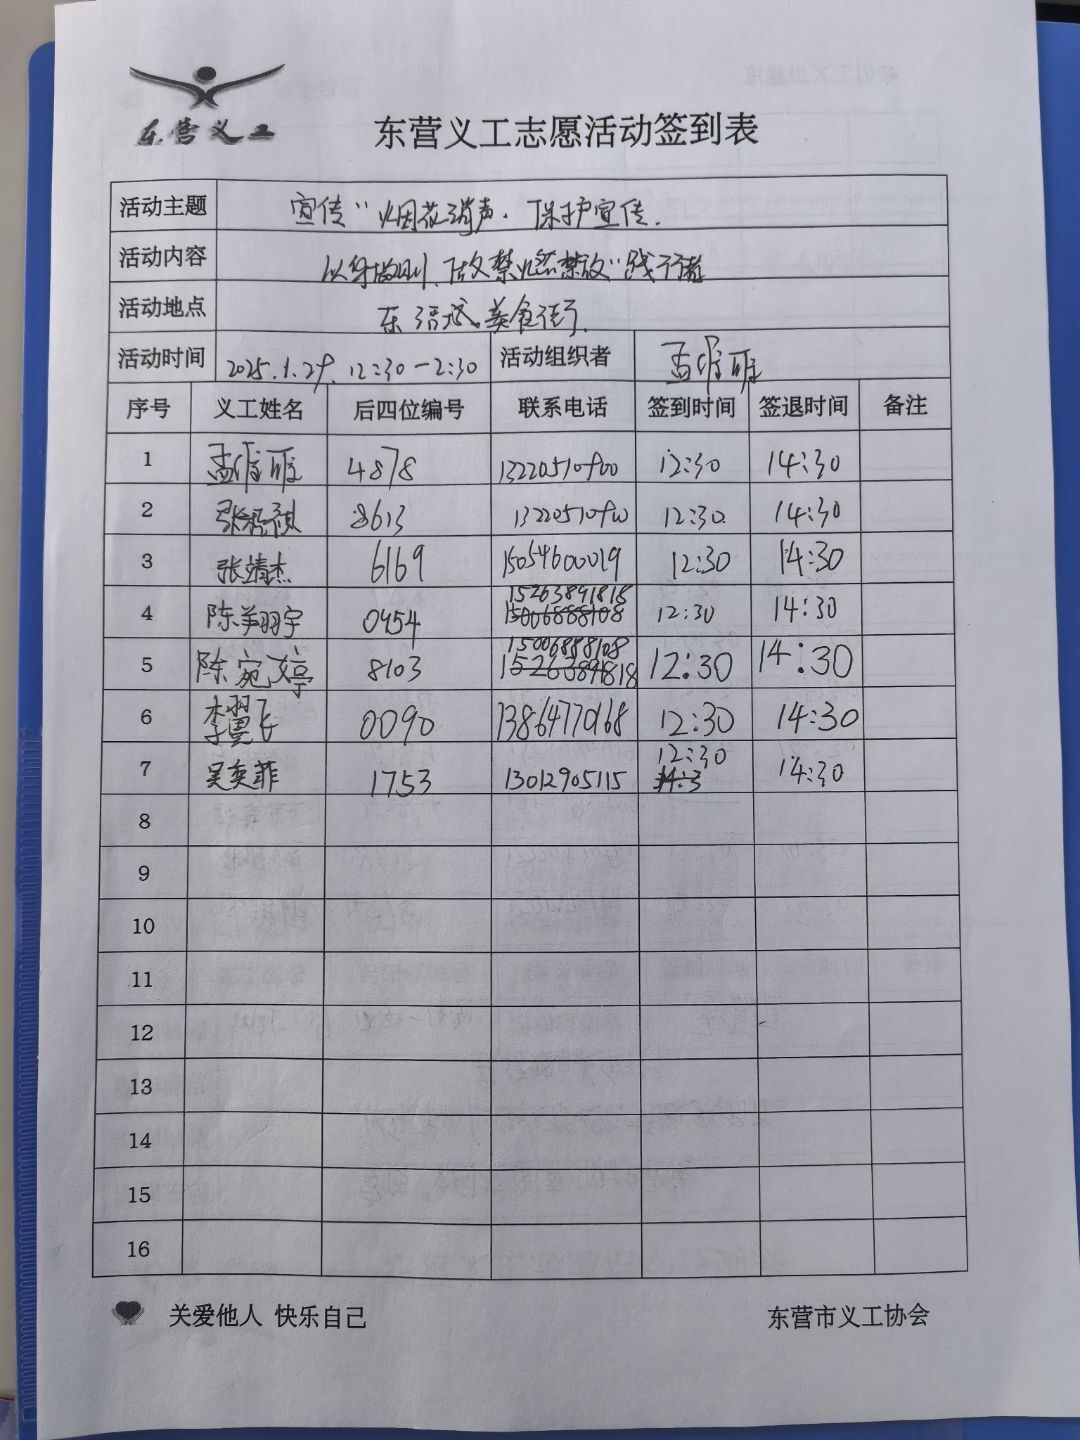 东营义工
东营义工志愿活动签到表
活动主题 宣传"烟花消声·保护宣传.
活动内容 以身做则、做禁燃禁放"践行者
活动地点 东 美食街.
活动时间 2025.1.29. 12:30-2:30 活动组织者 孟
序号 义工姓名 后四位编号 联系电话 签到时间 签退时间 备注
1 孟 4878 12:30 14:30
2 张 8613 12:30 14:30
3 张靖杰 6169 15054600019 12:30 14:30
4 陈羽宇 0454 15263891818 15006888108 12:30 14:30
5 陈宛婷 8103 15006888108 15263891818 12:30 14:30
6 李 飞 0090 13864770168 12:30 14:30
7 吴奕菲 1753 13012905115 12:30 14:3 14:30
8
9
10
11
12
13
14
15
16
关爱他人 快乐自己 东营市义工协会